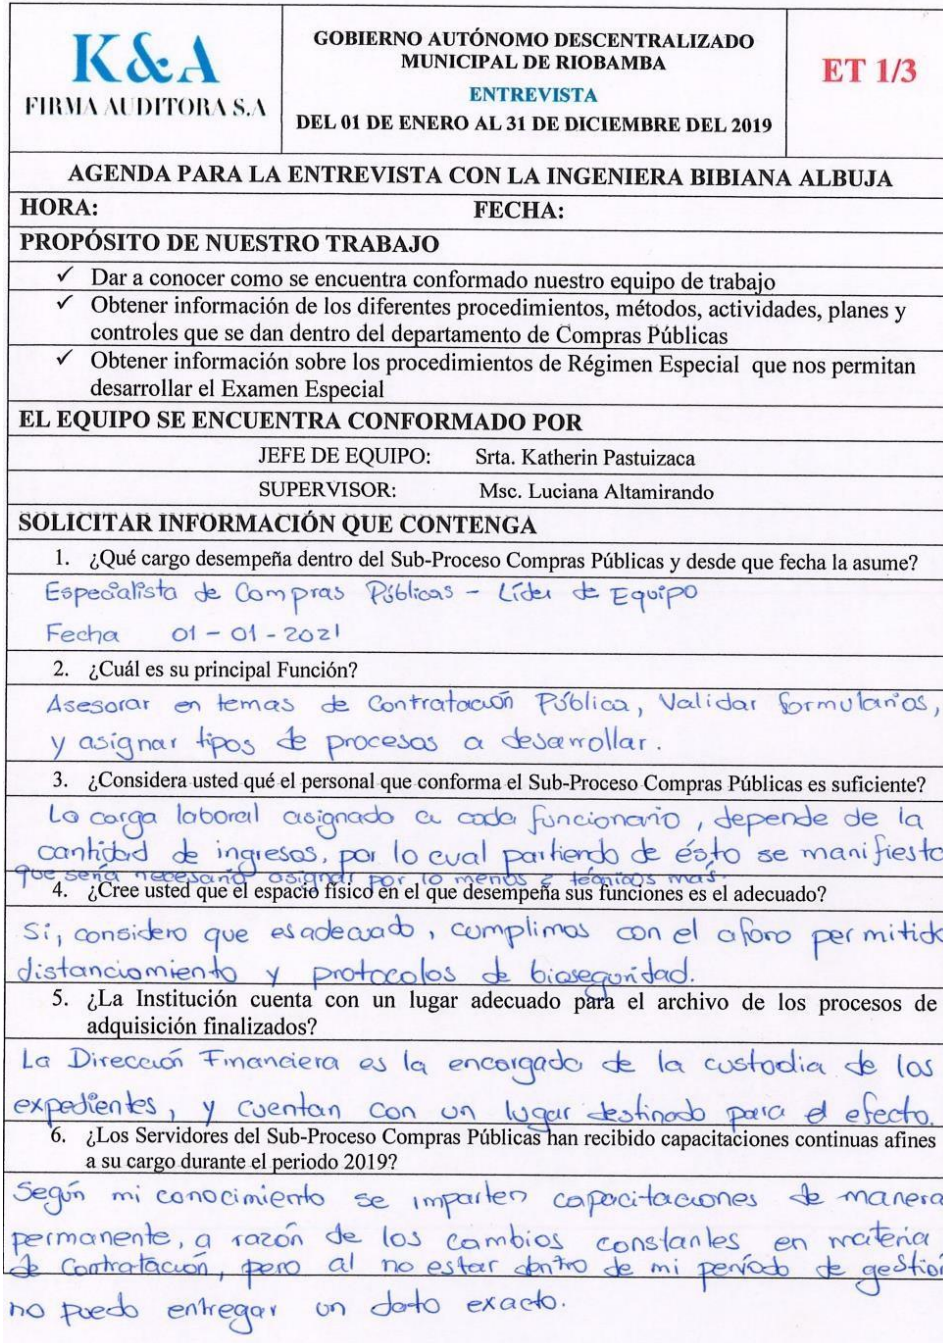 K&A
FIRMA AUDITORA S.A
GOBIERNO AUTÓNOMO DESCENTRALIZADO
MUNICIPAL DE RIOBAMBA
ENTREVISTA
DEL 01 DE ENERO AL 31 DE DICIEMBRE DEL 2019
ET 1/3
AGENDA PARA LA ENTREVISTA CON LA INGENIERA BIBIANA ALBUJA
HORA: FECHA:
PROPÓSITO DE NUESTRO TRABAJO
✓ Dar a conocer como se encuentra conformado nuestro equipo de trabajo
✓ Obtener información de los diferentes procedimientos, métodos, actividades, planes y
controles que se dan dentro del departamento de Compras Públicas
✓ Obtener información sobre los procedimientos de Régimen Especial que nos permitan
desarrollar el Examen Especial
EL EQUIPO SE ENCUENTRA CONFORMADO POR
JEFE DE EQUIPO: Srta. Katherin Pastuizaca
SUPERVISOR: Msc. Luciana Altamirando
SOLICITAR INFORMACIÓN QUE CONTENGA
1. ¿Qué cargo desempeña dentro del Sub-Proceso Compras Públicas y desde que fecha la asume?
Especialista de Compras Públicas - Líder de Equipo
Fecha 01 - 01 - 2021
2. ¿Cuál es su principal Función?
Asesorar en temas de Contratación Pública, Validar formularios,
y asignar tipos de procesos a desarrollar.
3. ¿Considera usted qué el personal que conforma el Sub-Proceso Compras Públicas es suficiente?
La carga laboral asignado a cada funcionario, depende de la
cantidad de ingresos, por lo cual partiendo de ésto se manifiesta
que sería necesario asignar por lo menos 2 técnicos más.
4. ¿Cree usted que el espacio físico en el que desempeña sus funciones es el adecuado?
Si, considero que es adecuado, cumplimos con el aforo permitido
distanciamiento y protocolos de bioseguridad.
5. ¿La Institución cuenta con un lugar adecuado para el archivo de los procesos de
adquisición finalizados?
La Dirección Financiera es la encargado de la custodia de los
expedientes, y cuentan con un lugar destinado para el efecto.
6. ¿Los Servidores del Sub-Proceso Compras Públicas han recibido capacitaciones continuas afines
a su cargo durante el periodo 2019?
Según mi conocimiento se imparten capacitaciones de manera
permanente, a razón de los cambios constantes en materia
de Contratación, pero al no estar dentro de mi período de gestión
no puedo entregar un dato exacto.